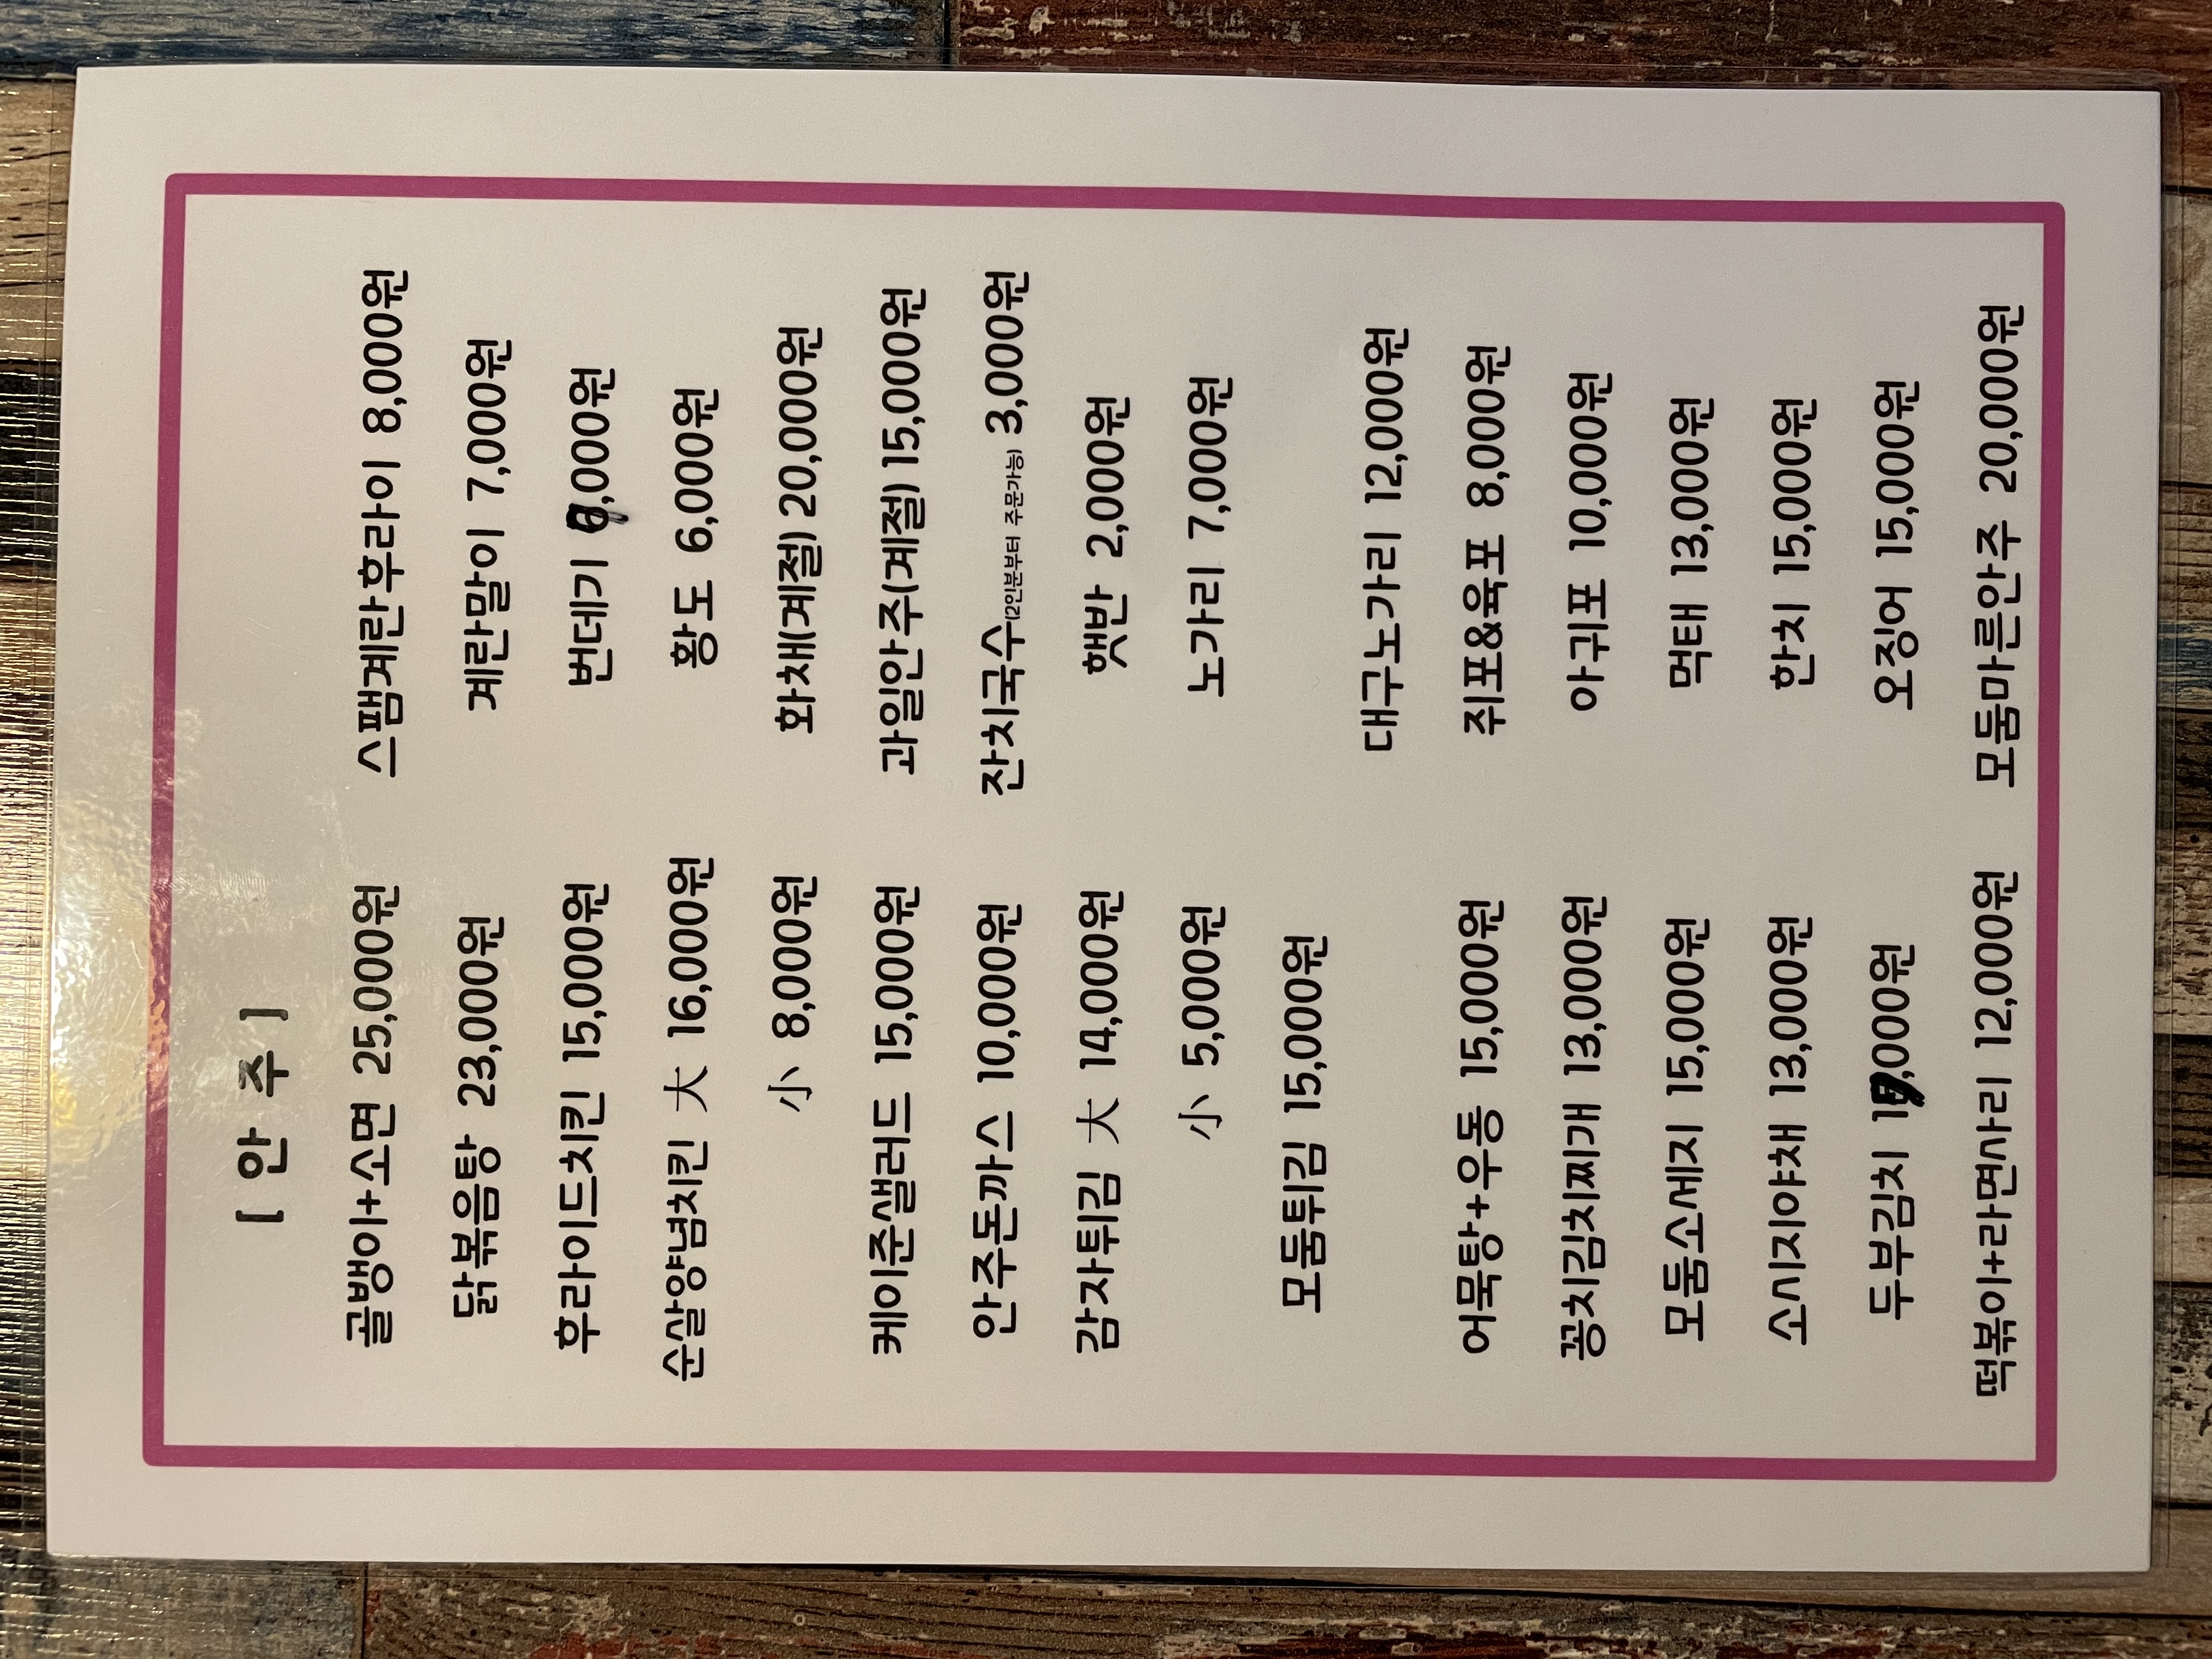 [ 안 주 ]
골뱅이+소면 25,000원
닭볶음탕 23,000원
후라이드치킨 15,000원
순살양념치킨 大 16,000원
小 8,000원
케이준샐러드 15,000원
안주돈까스 10,000원
감자튀김 大 14,000원
小 5,000원
모둠튀김 15,000원
어묵탕+우동 15,000원
꽁치김치찌개 13,000원
모둠소세지 15,000원
소시지야채 13,000원
두부김치
떡볶이+라면사리 12,000원
스팸계란후라이 8,000원
계란말이 7,000원
번데기
황도 6,000원
화채(계절) 20,000원
과일안주(계절) 15,000원
잔치국수(2인분부터 주문가능) 3,000원
햇반 2,000원
노가리 7,000원
대구노가리 12,000원
쥐포&육포 8,000원
아귀포 10,000원
먹태 13,000원
한치 15,000원
오징어 15,000원
모둠마른안주 20,000원